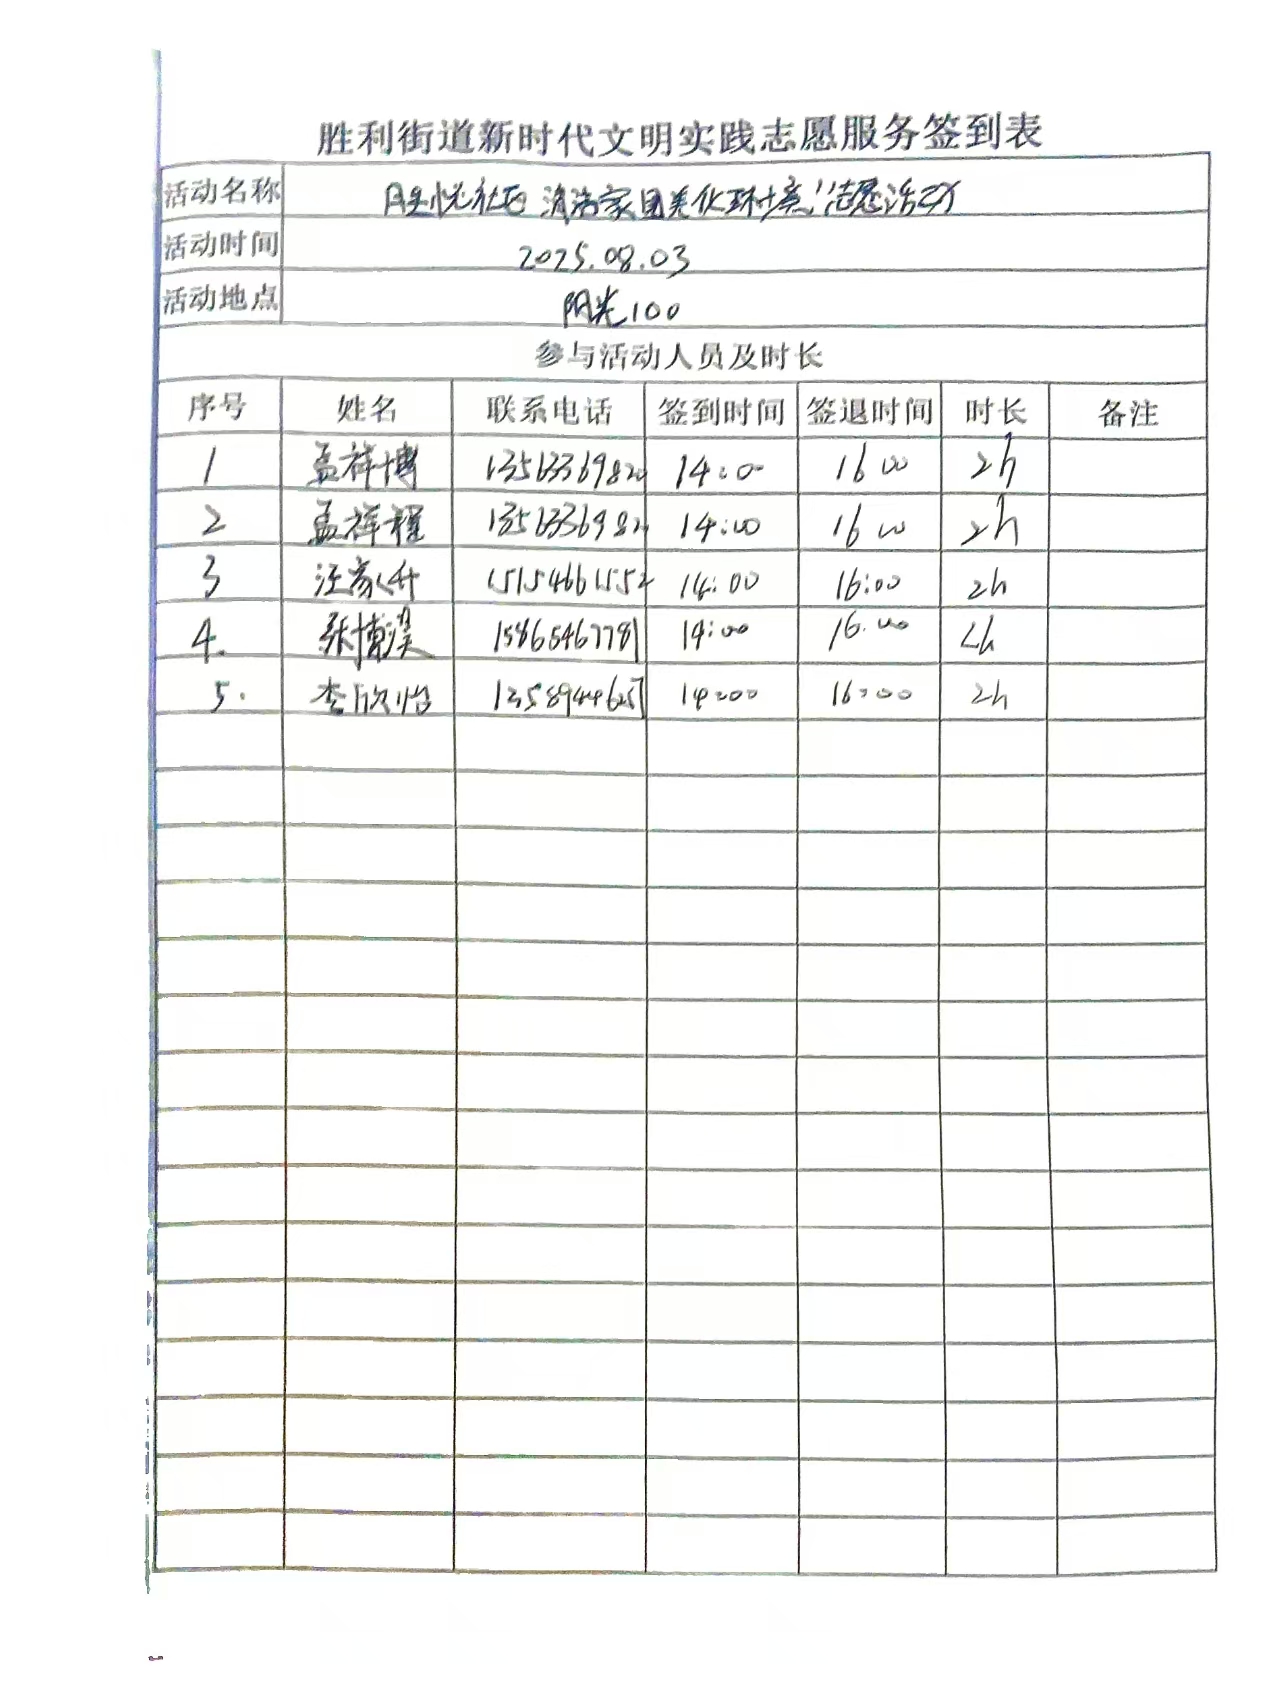 胜利街道新时代文明实践志愿服务签到表
活动名称 胜悦社区 清洁家园美化环境"志愿活动
活动时间 2025.08.03
活动地点 阳光100
参与活动人员及时长
序号 姓名 联系电话 签到时间 签退时间 时长 备注
1 孟祥博 14:00 16 00 2h
2 孟祥程 14:00 16 00 2h
3 汪家升 15154661552 14:00 16:00 2h
4. 张博淏 15865467781 14:00 16:00 2h
5. 李欣怡 13589446257 14:00 16:00 2h